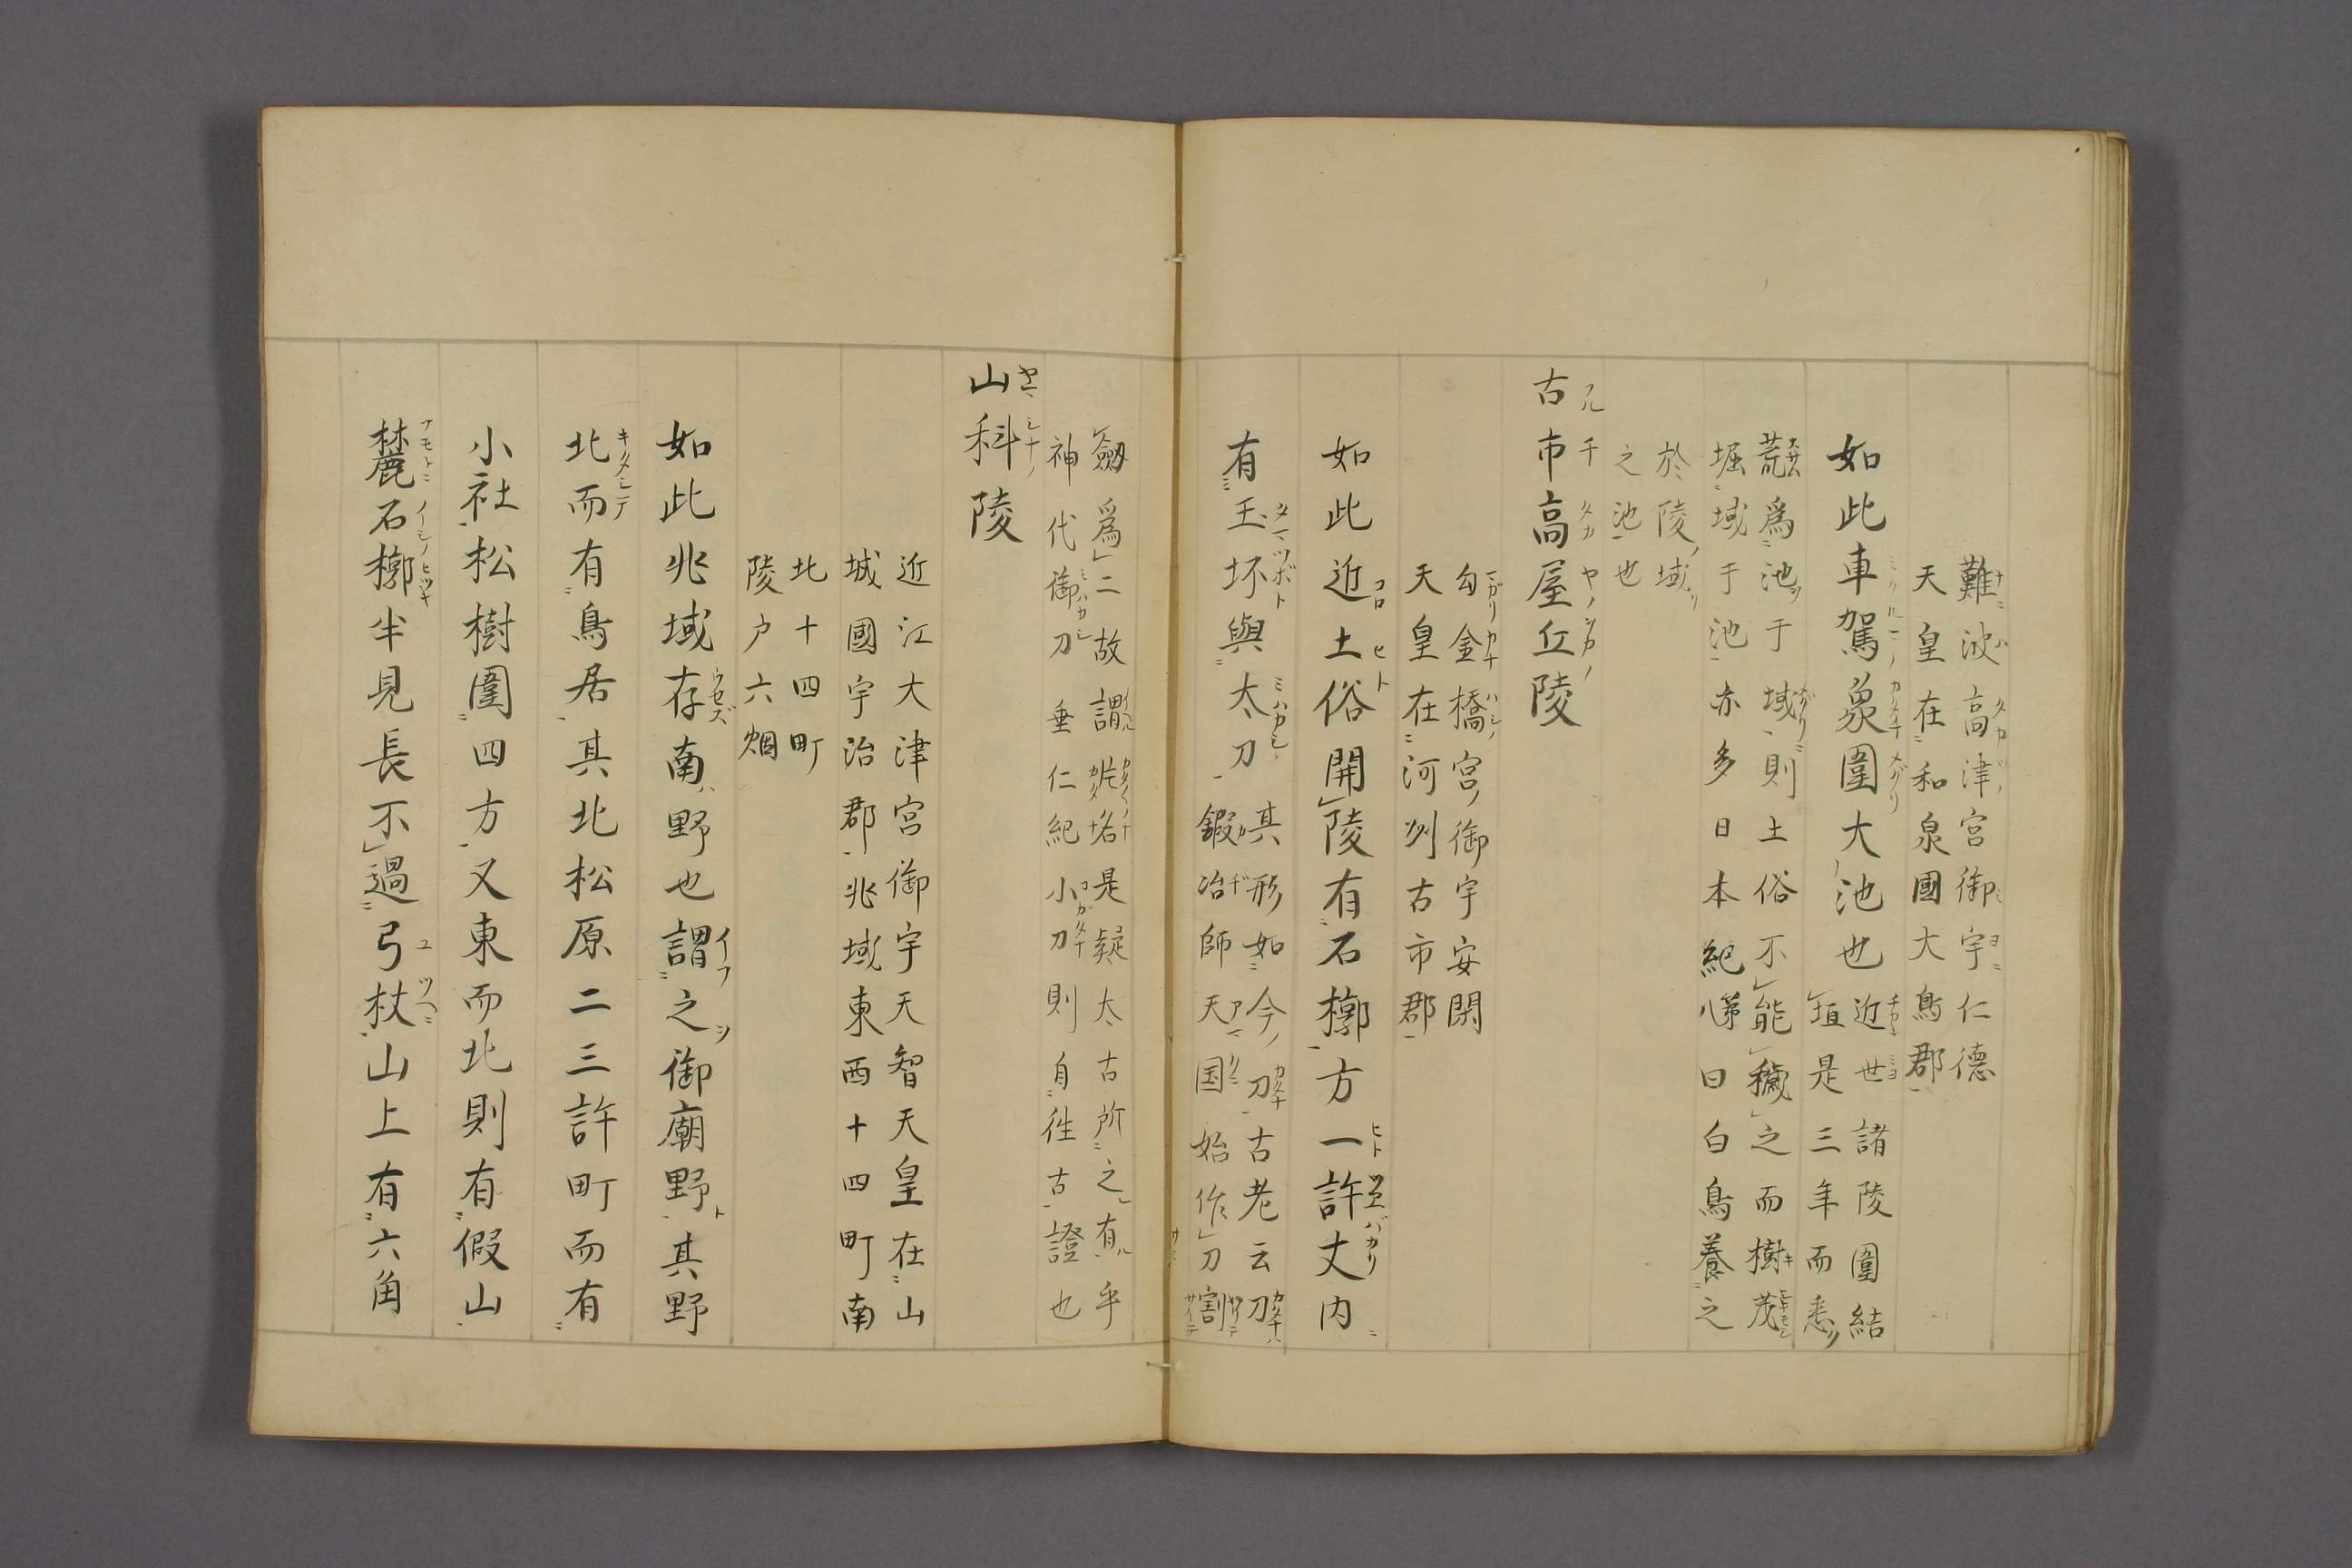 難波高津宮御宇仁德
天皇在和泉國大鳥郡
如此車駕象圍大池也
近世諸陵圍結
垣是三年而悉
荒為池于域則土俗不能穢之而樹茂
堀域于池亦多日本紀第八曰白鳥養之
於陵域
之池也
古市高屋丘陵
勾金橋宮御宇安閑
天皇在河州古市郡
如此近土俗開陵有石槨方一許丈内
有玉坏與太刀
其形如今刀古老云刀
鍜冶師天国始作刀割
劔為二故謂是疑太古所之有乎
神代御刀垂仁紀小刀則自徃古證也
山科陵
近江大津宮御宇天智天皇在山
城國宇治郡兆域東西十四町南
北十四町
陵户六烟
如此兆域存南野也謂之御廟野其野
北而有鳥居其北松原二三許町而有
小社松樹圍四方又東而北則有假山
麓石槨半見長不過弓杖山上有六角